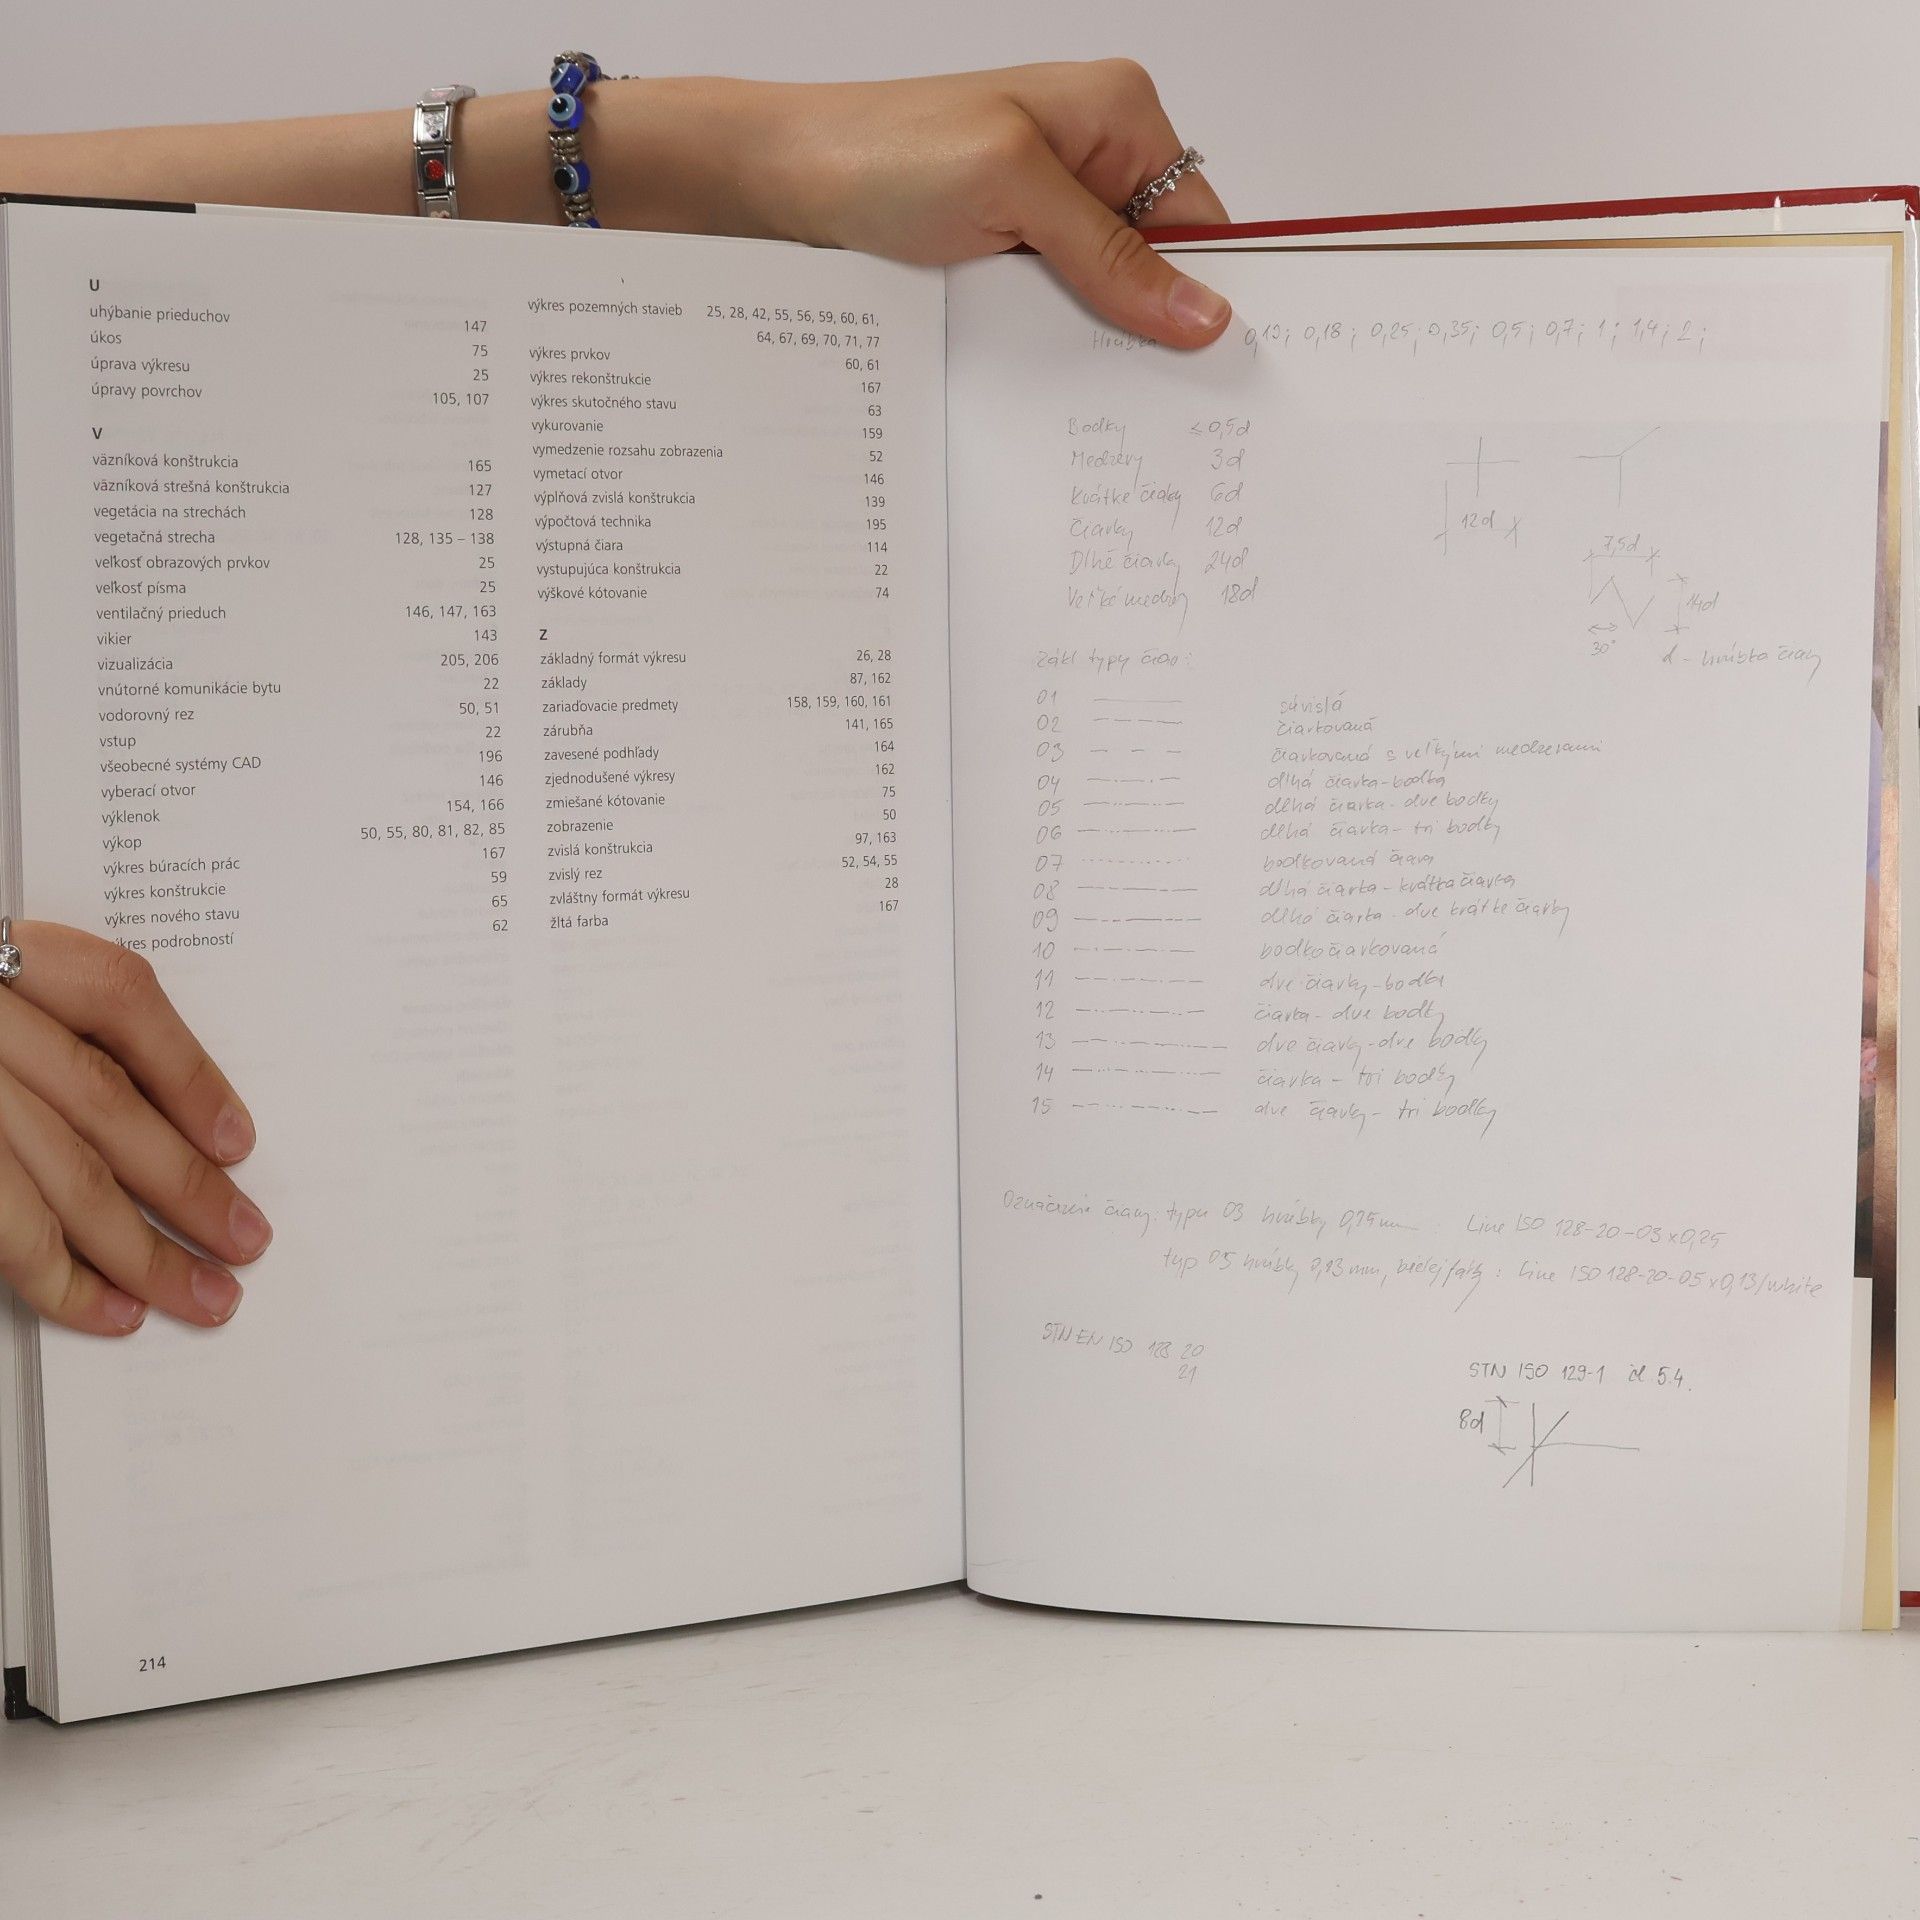 U
uhýbanie prieduchov 147
úkos 75
úprava výkresu 25
úpravy povrchov 105, 107
V
väzníková konštrukcia 165
väzníková strešná konštrukcia 127
vegetácia na strechách 128
vegetačná strecha 128, 135 – 138
veľkosť obrazových prvkov 25
veľkosť písma 25
ventilačný prieduch 146, 147, 163
vikier 143
vizualizácia 205, 206
vnútorné komunikácie bytu 22
vodorovný rez 50, 51
vstup 22
všeobecné systémy CAD 196
vyberací otvor 146
výklenok 154, 166
výkop 50, 55, 80, 81, 82, 85
výkres búracích prác 167
výkres konštrukcie 59
výkres nového stavu 65
výkres podrobností 62
výkres pozemných stavieb 25, 28, 42, 55, 56, 59, 60, 61,
64, 67, 69, 70, 71, 77
výkres prvkov 60, 61
výkres rekonštrukcie 167
výkres skutočného stavu 63
vykurovanie 159
vymedzenie rozsahu zobrazenia 52
vymetací otvor 146
výplňová zvislá konštrukcia 139
výpočtová technika 195
výstupná čiara 114
vystupujúca konštrukcia 22
výškové kótovanie 74
Z
základný formát výkresu 26, 28
základy 87, 162
zariaďovacie predmety 158, 159, 160, 161
zárubňa 141, 165
zavesené podhľady 164
zjednodušené výkresy 162
zmiešané kótovanie 75
zobrazenie 50
zvislá konštrukcia 97, 163
zvislý rez 52, 54, 55
zvláštny formát výkresu 28
žltá farba 167
214
Hrúbka 0,13; 0,18; 0,25; 0,35; 0,5; 0,7; 1; 1,4; 2;
Bodky ≤ 0,5d
Medzery 3d
Krátke čiarky 6d
Čiarky 12d
Dlhé čiarky 24d
Veľké medzery 18d
12d
7,5d
14d
30°
d - hrúbka čiary
Zákl typy čiar:
01 súvislá
02 čiarkovaná
03 čiarkovaná s veľkými medzerami
04 dlhá čiarka-bodka
05 dlhá čiarka-dve bodky
06 dlhá čiarka-tri bodky
07 bodkovaná čiara
08 dlhá čiarka-krátka čiarka
09 dlhá čiarka-dve krátke čiarky
10 bodkočiarkovaná
11 dve čiarky-bodka
12 čiarka-dve bodky
13 dve čiarky-dve bodky
14 čiarka - tri bodky
15 dve čiarky - tri bodky
Označenie čiary: typu 03 hrúbky 0,25mm : Line ISO 128-20-03x0,25
typ 05 hrúbky 0,13mm, bielej farby : Line ISO 128-20-05x0,13/white
STN EN ISO 128 20
21
STN ISO 129-1 čl 5.4.
8d